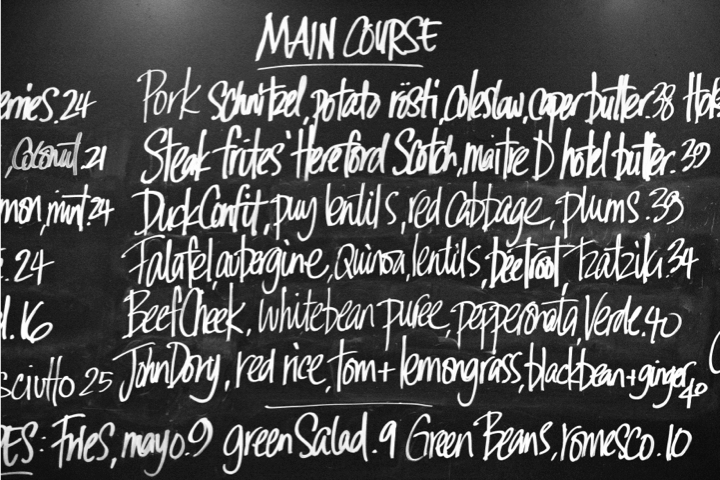 MAIN COURSE
erries.24 Pork schnitzel, potato rösti, coleslaw, caper butter.38
, Coconut.21 Steak frites' Hereford Scotch, maitre D hotel butter.39
mon, mint.24 Duck Confit, puy lentils, red cabbage, plums.39
.24 Falafel, aubergine, Quinoa, lentils, beetroot tzatziki.34
.16 Beef Cheek, white bean puree, pepperonata, Verde.40
sciutto 25 John Dory, red rice, tom + lemongrass, black bean + ginger 40
ES: Fries, mayo.9 green Salad.9 Green Beans, romesco.10